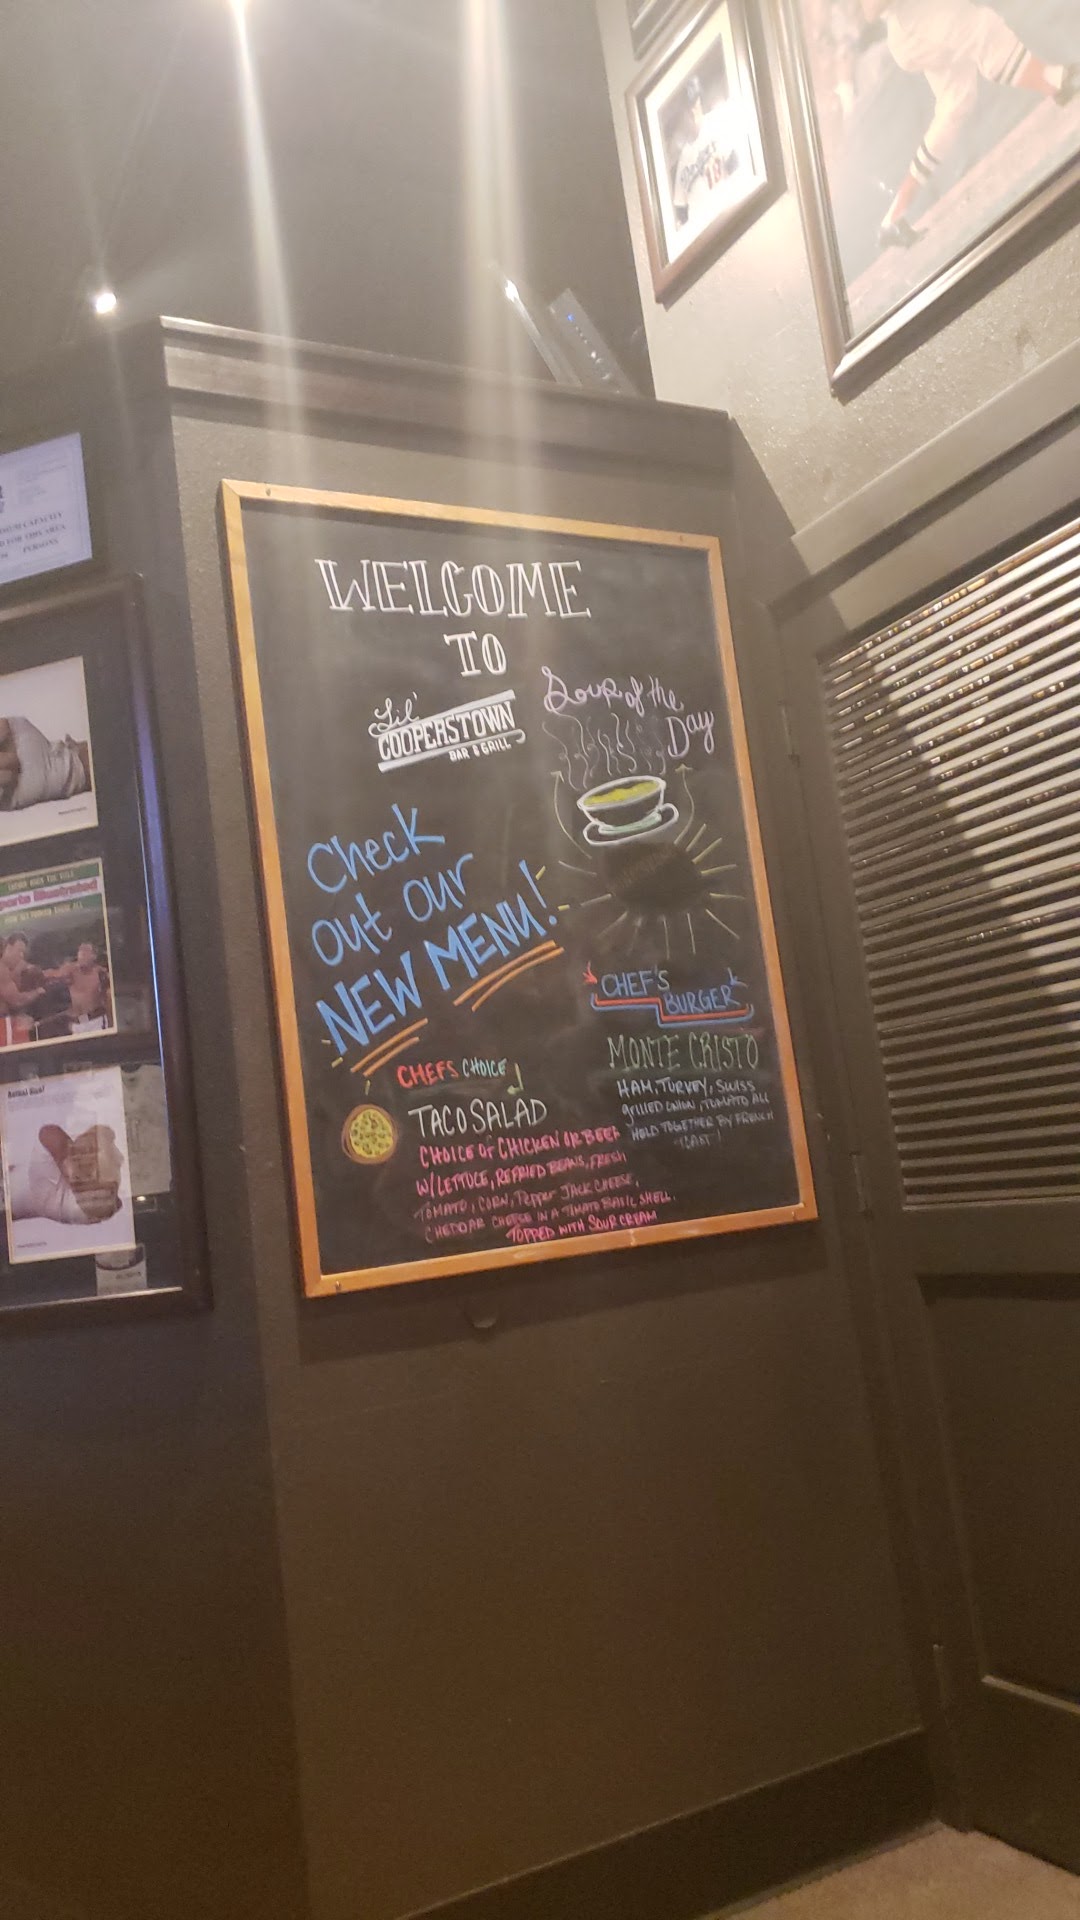 WELCOME
TO
Lil'
COOPERSTOWN
BAR & GRILL
Soup of the
Day
Check
out our
NEW MENU!
CHEF'S
BURGER
MONTE CRISTO
HAM, TURKEY, SWISS
GRILLED ONION, TOMATO ALL
HELD TOGETHER BY FRENCH
TOAST!
CHEFS CHOICE
TACO SALAD
CHOICE OF CHICKEN OR BEEF
W/LETTUCE, REFRIED BEANS, FRESH
TOMATO, CORN, PEPPER JACK CHEESE,
CHEDDAR CHEESE IN A TOMATO BASIL SHELL.
TOPPED WITH SOUR CREAM
CAPACITY
FOR THIS AREA
PERSONS
ports Illustrated